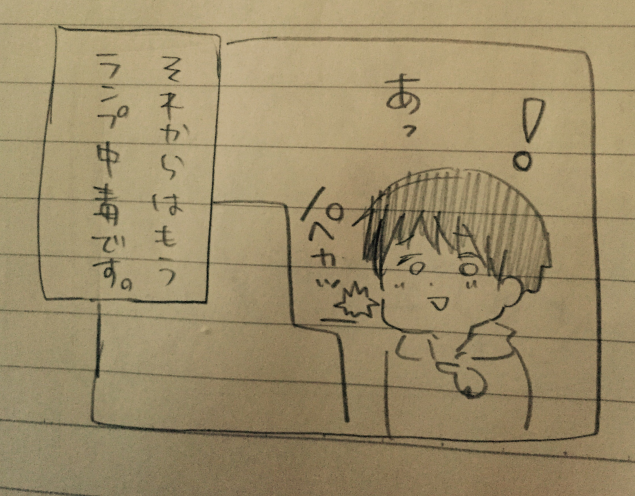 ！
あっ
ペカッ
それからはもう
ランプ中毒です。